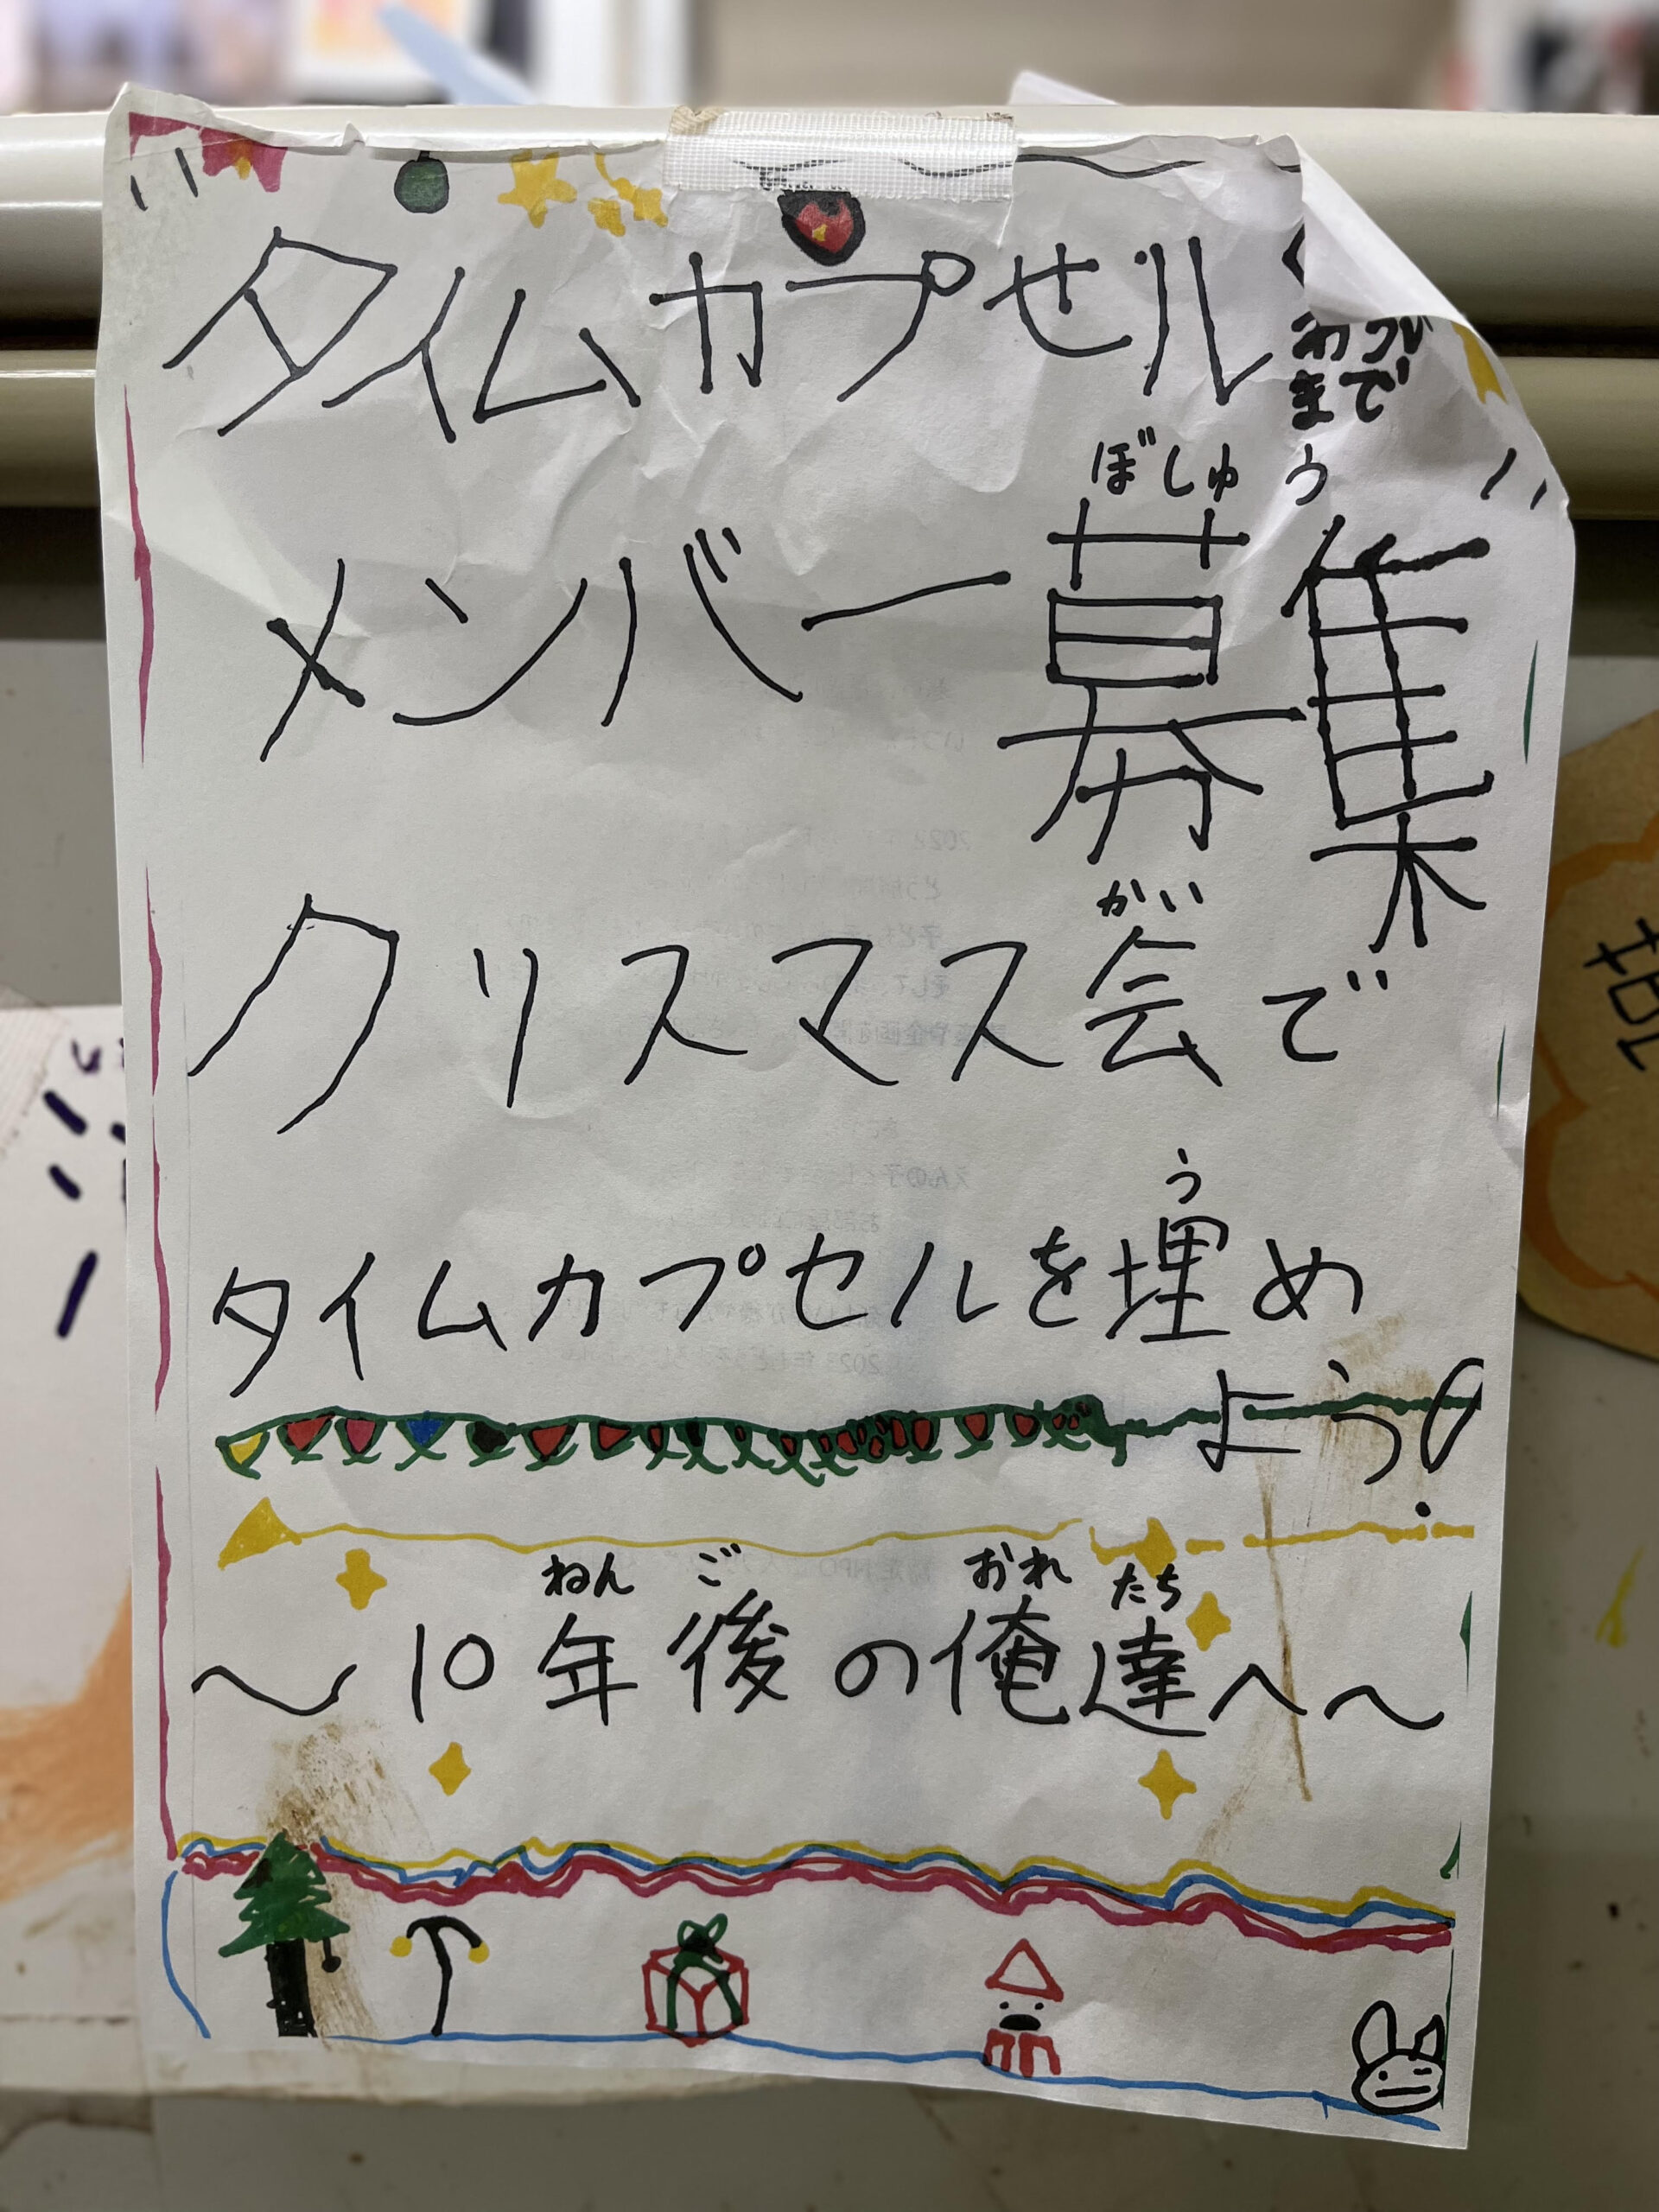 タイムカプセル
まで
ぼしゅう
メンバー募集
かい
クリスマス会で
う
タイムカプセルを埋め
よう!
ねんご おれたち
~10年後の俺達へ~